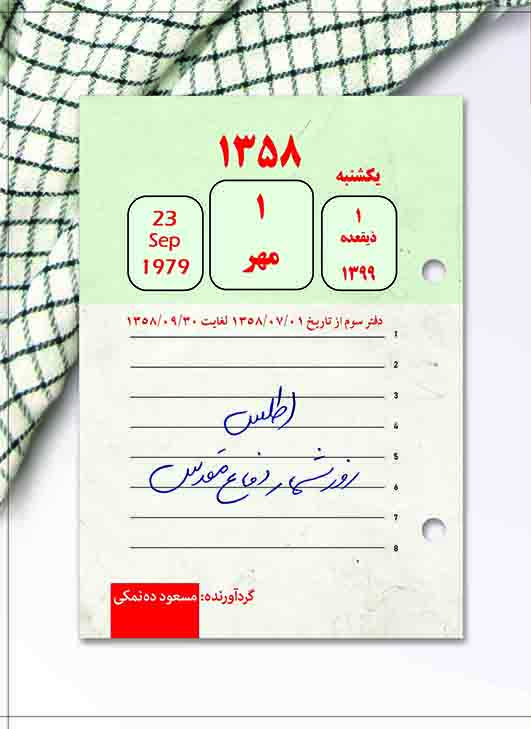 ۱۳۵۸
یکشنبه
۱
ذیقعده
۱۳۹۹
۱
مهر
23
Sep
1979
دفتر سوم از تاریخ ۱۳۵۸/۰۷/۰۱ لغایت ۱۳۵۸/۰۹/۳۰
1
2
3
اطلس
4
5
روزشمار دفاع مقدس
6
7
8
گردآورنده: مسعود ده‌نمکی